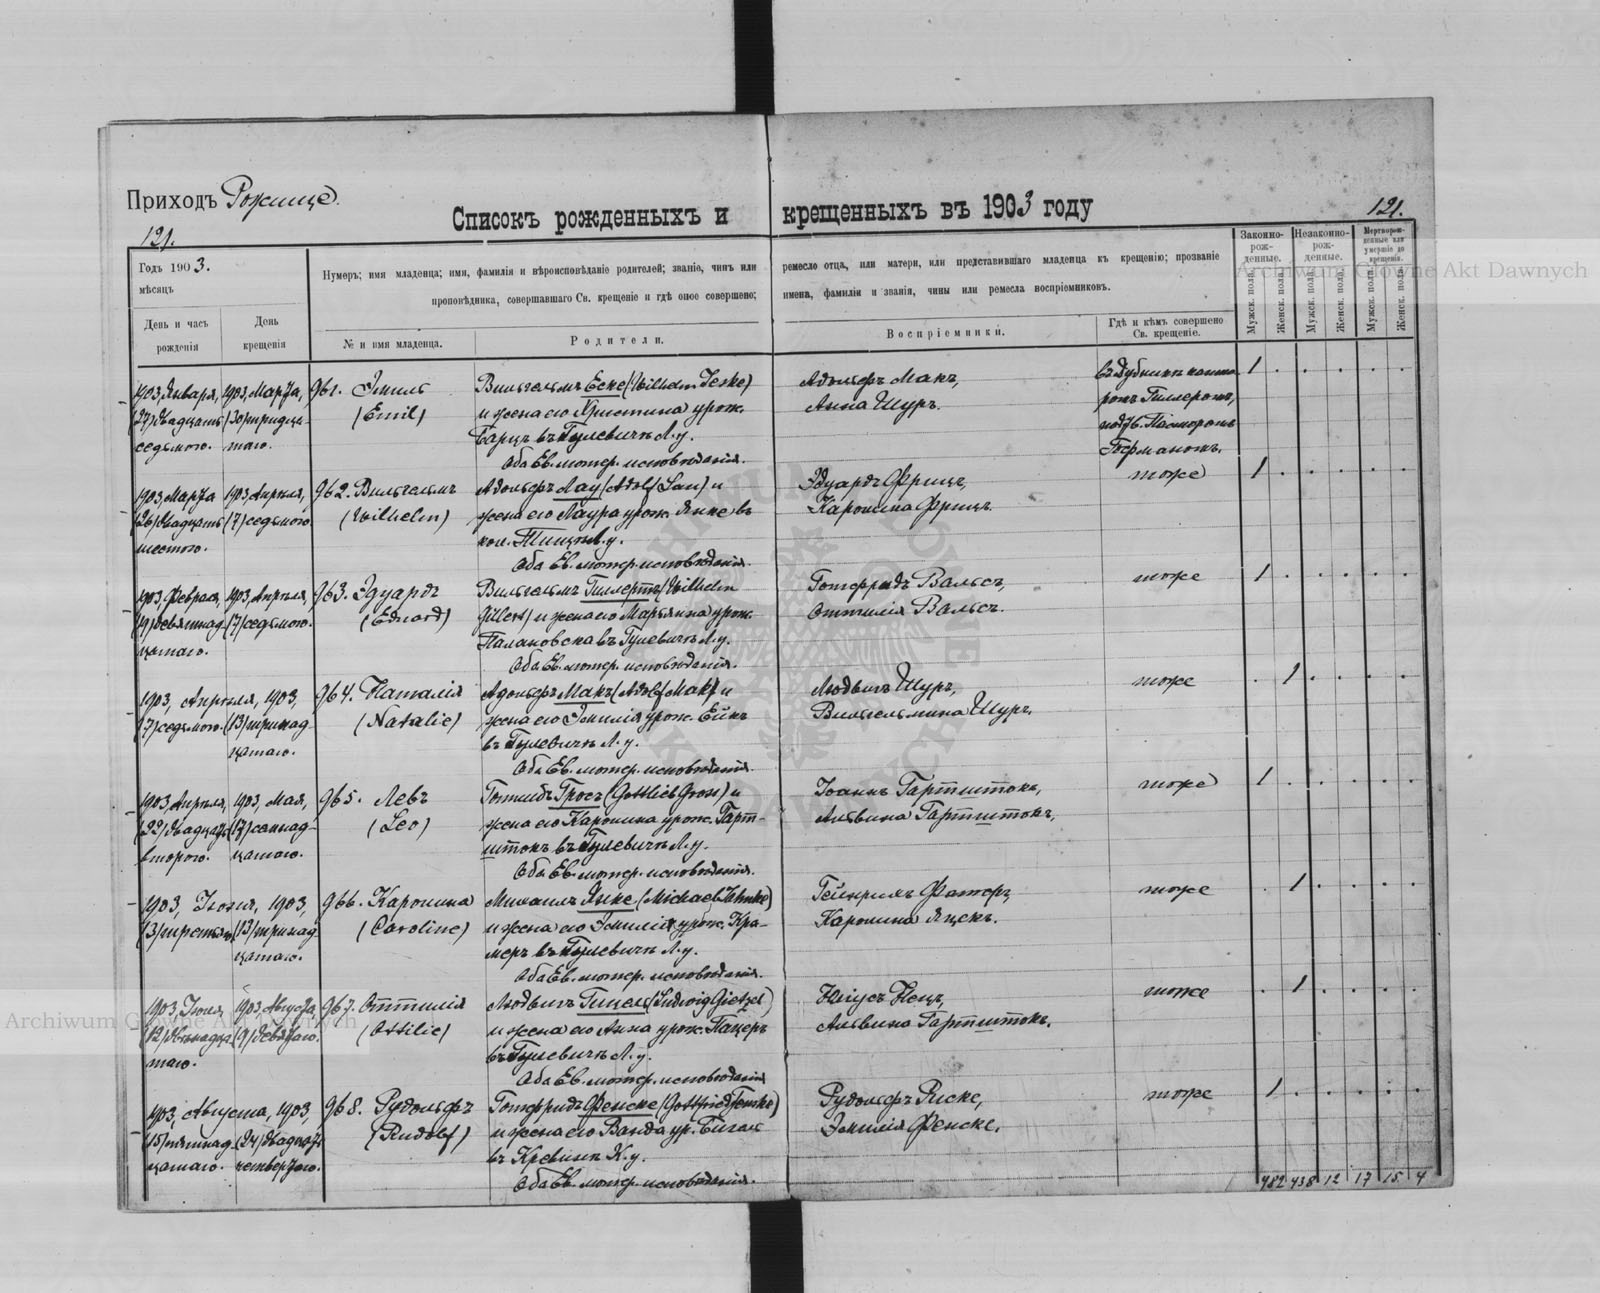 Приходъ Рожище.
Списокъ рожденныхъ и крещенныхъ въ 1903 году
121.
121.
Годъ 1903.
мѣсяцъ
День и часъ рожденія
День крещенія
Нумеръ; имя младенца; имя, фамилія и вѣроисповѣданіе родителей; званіе, чинъ или ремесло отца, или матери, или представившаго младенца къ крещенію; прозваніе
проповѣдника, совершавшаго Св. крещеніе и гдѣ оное совершено; имена, фамиліи и званія, чины или ремесла воспріемниковъ.
№ и имя младенца.
Родители.
Воспріемники.
Гдѣ и кѣмъ совершено Св. крещеніе.
Законно-рож-денные.
Незаконно-рож-денные.
Мертворож-денные или умершіе до крещенія.
Мужск. пола.
Женск. пола.
Мужск. пола.
Женск. пола.
Мужск. пола.
Женск. пола.
1903, Января, 1903, Марта, 961. Эмиль Вильгельмъ Еске (Wilhelm Jeske) Адольфъ Макъ, 1
(27) двадцать (30) тридца- (Emil) и жена его Христина урож. Анна Шуръ.
седьмого. таго. Барцъ въ Гулевичѣ Л. у.
Оба Ев. лютер. исповѣданія.
1903 Марта 1903 Апрѣля, 962. Вильгельмъ Адольфъ Лау (Adolf Lau) и Эдуардъ Фрицъ, тоже 1
(26) двадцать (7) седьмого. (Wilhelm) жена его Лаура урож. Янке въ Каролина Фрицъ.
шестого. кол. Л. у.
Оба Ев. лютер. исповѣданія.
1903, Февраля, 1903, Апрѣля, 963. Эдуардъ Вильгельмъ Гиллертъ (Wilhelm Готфридъ Вальсъ, тоже 1
(19) девятнад- (7) седьмого. (Eduard) Gillert) и жена его Марьянна урож. Оттилія Вальсъ.
цатаго. въ Гулевичѣ Л. у.
Оба Ев. лютер. исповѣданія.
1903, Апрѣля, 1903, 964. Наталія Адольфъ Макъ (Adolf Mak) и Людвигъ Шуръ, тоже 1
(7) седьмого. (13) тринад- (Natalie) жена его Эмилія урож. Вильгельмина Шуръ.
цатаго. въ Гулевичѣ Л. у.
Оба Ев. лютер. исповѣданія.
1903, Апрѣля, 1903, Мая, 965. Левъ Готлибъ Гросъ (Gottlieb Gross) и Іоаннъ Гартштокъ, тоже 1
(22) двадцать (17) семнад- (Leo) жена его Каролина урож. Гарт- Альвина Гартштокъ.
второго. цатаго. штокъ въ Гулевичѣ Л. у.
Оба Ев. лютер. исповѣданія.
1903, Іюня, 1903, 966. Каролина Михаилъ Янке (Michael Jahnke) Гейнрихъ тоже 1
(3) третьяго (13) тринад- (Caroline) и жена его Эмилія урож. Кра- Каролина
цатаго. меръ въ Гулевичѣ Л. у.
Оба Ев. лютер. исповѣданія.
1903, Іюля 1903, Августа, 967. Оттилія Людвигъ Гицель (Ludwig Gietzel) тоже 1
(12) двѣнадца- (9) девятаго. (Ottilie) и жена его Анна урож. Пацеръ Альвина Гартштокъ.
таго. въ Гулевичѣ Л. у.
Оба Ев. лютер. исповѣданія
1903, Августа, 1903 968. Рудольфъ Готфридъ Фенске (Gottfried Fenske) Рудольфъ Риске, тоже 1
(15) пятнад- (24) двадцать (Rudolf) и жена его Ванда ур. Эмилія Фенске.
цатаго. четвертаго. въ Л. у.
Оба Ев. лютер. исповѣданія.
482 438 12 17 15 4
Archiwum Główne Akt Dawnych
Archiwum Główne Akt Dawnych